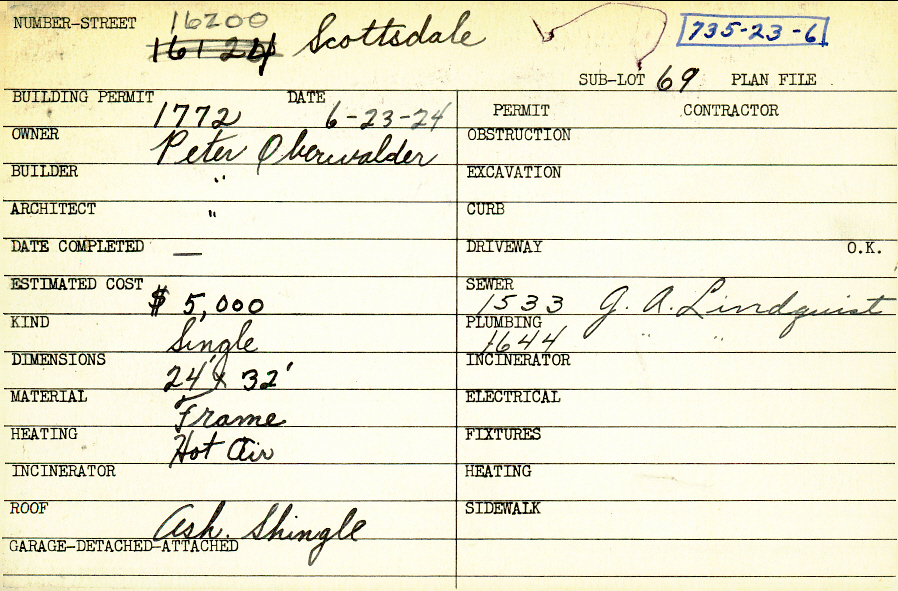 NUMBER-STREET 16200 Scottsdale 735-23-6
16124
SUB-LOT 69 PLAN FILE
BUILDING PERMIT 1772 DATE 6-23-24
PERMIT CONTRACTOR
OWNER Peter Oberwalder
OBSTRUCTION
BUILDER "
EXCAVATION
ARCHITECT "
CURB
DATE COMPLETED —
DRIVEWAY O.K.
ESTIMATED COST $ 5,000
SEWER 1533 G. A. Lindquist
KIND Single
PLUMBING 1644 " "
DIMENSIONS 24' x 32'
INCINERATOR
MATERIAL Frame
ELECTRICAL
HEATING Hot Air
FIXTURES
INCINERATOR
HEATING
ROOF Ash. Shingle
SIDEWALK
GARAGE-DETACHED-ATTACHED